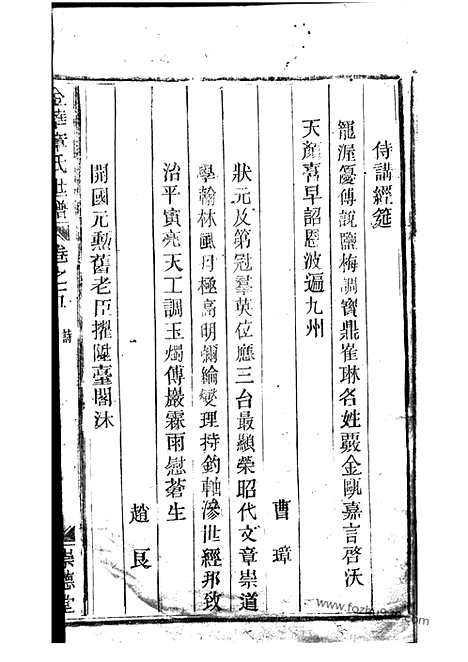 侍講經筵
寵渥優傳說鹽梅調寶鼎崔琳名姓覆金甌嘉言啓沃
天顏喜早詔恩波遍九州
曹璋
狀元及第冠羣英位應三台最顯榮昭代文章崇道
學翰林風月極高明彌綸燮理持鈞軸滲世經邦致
治平寅亮天工調玉燭傅巖霖雨慰蒼生
趙艮
開國元勲舊老臣擢陞臺閣沐
金華章氏世譜
卷之五
詩
崇德堂
www.fozhu920.com